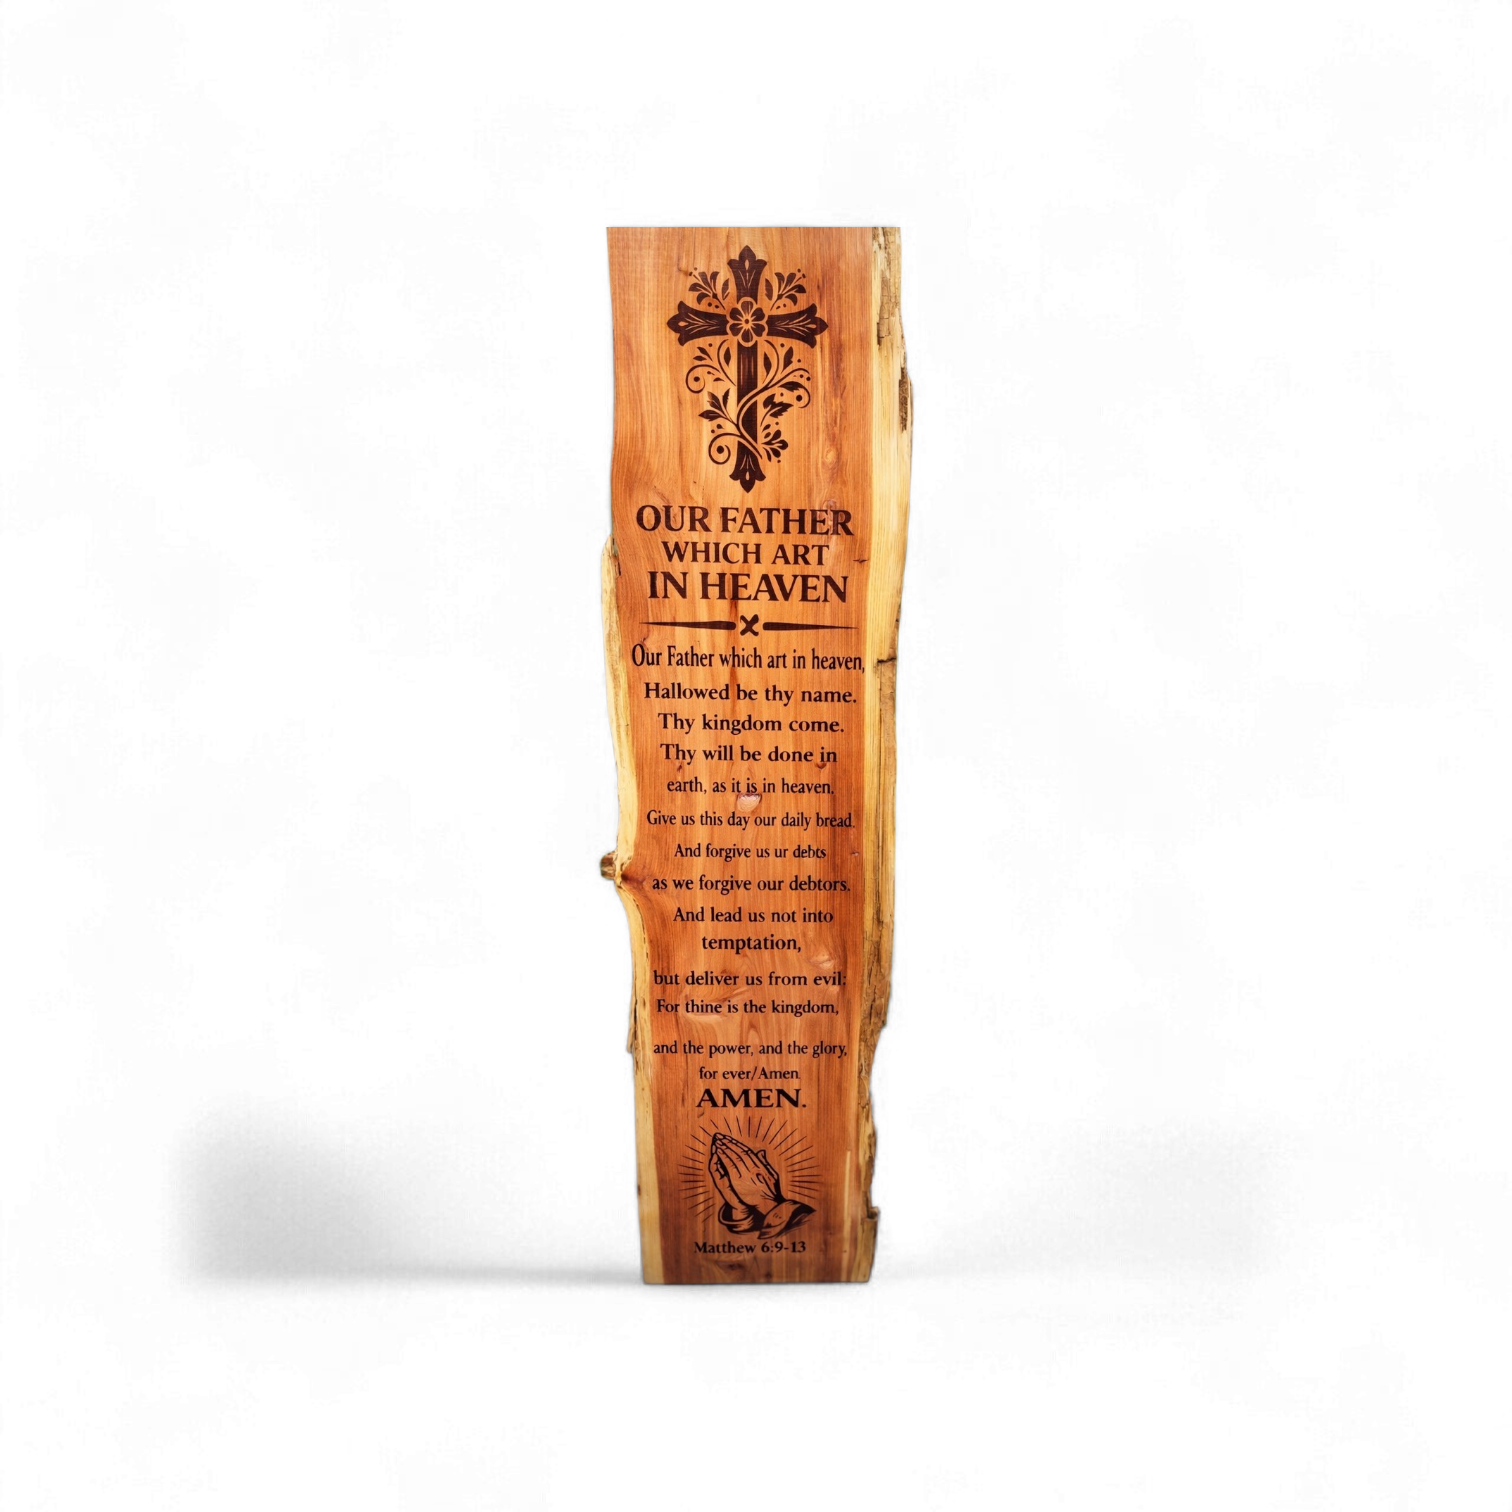 OUR FATHER
WHICH ART
IN HEAVEN
Our Father which art in heaven,
Hallowed be thy name.
Thy kingdom come.
Thy will be done in
earth, as it is in heaven.
Give us this day our daily bread.
And forgive us ur debts
as we forgive our debtors.
And lead us not into
temptation,
but deliver us from evil:
For thine is the kingdom,
and the power, and the glory,
for ever/Amen.
AMEN.
Matthew 6:9-13